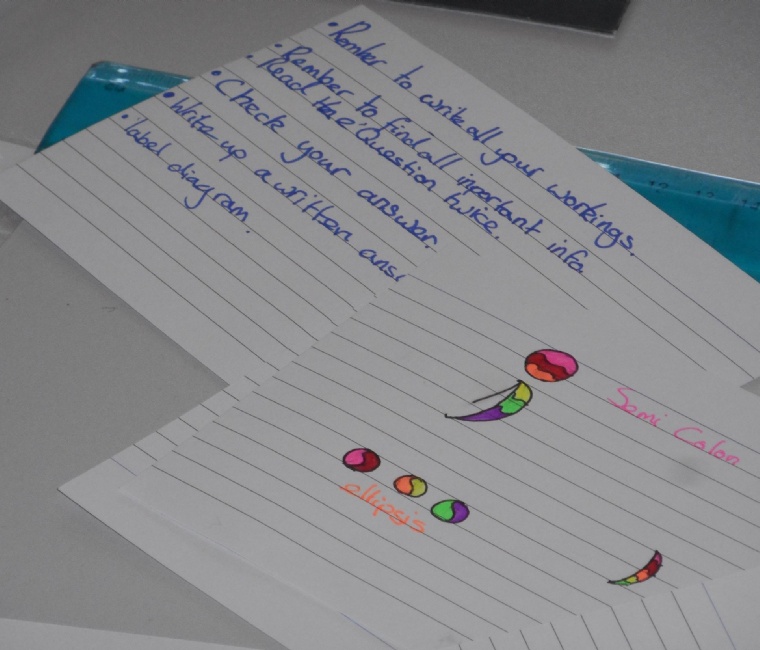 • Rember to write all your workings.
• Rember to find all important info.
• Read the Question twice.
• Check your answer.
• Write up a written ans
• label diagram.
Semi Colon
ellipsis